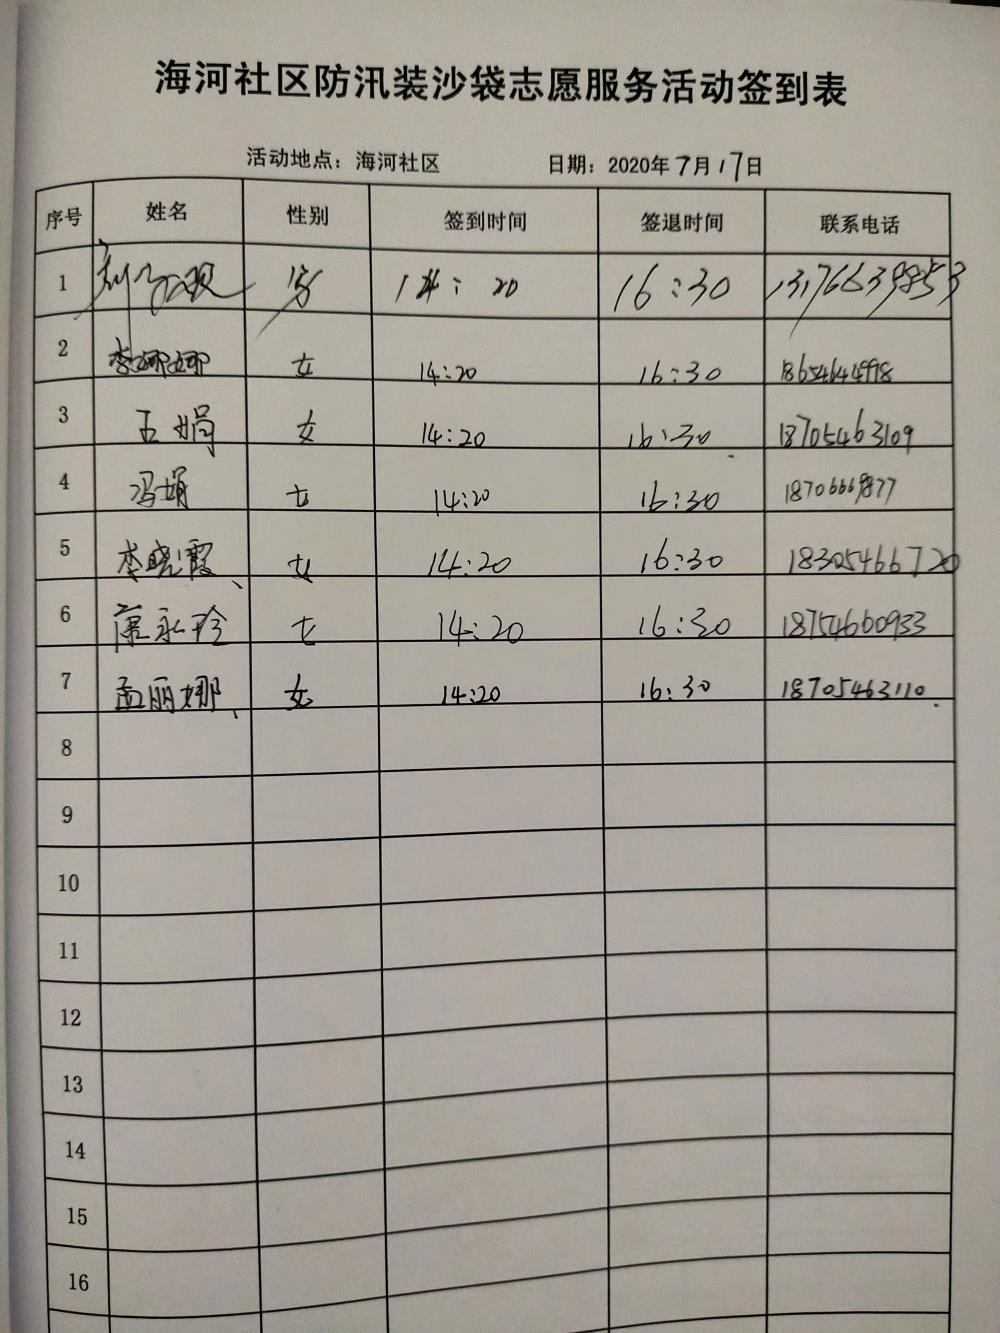 海河社区防汛装沙袋志愿服务活动签到表
活动地点：海河社区 日期：2020年7月17日
序号 姓名 性别 签到时间 签退时间 联系电话
1 男 14:20 16:30 13176639853
2 李娜娜 女 14:20 16:30 18654644998
3 王娟 女 14:20 16:30 18705463109
4 冯娟 女 14:20 16:30 18706669877
5 李晓霞 女 14:20 16:30 18305466720
6 永玲 女 14:20 16:30 18754660933
7 孟丽娜 女 14:20 16:30 18705463110
8
9
10
11
12
13
14
15
16